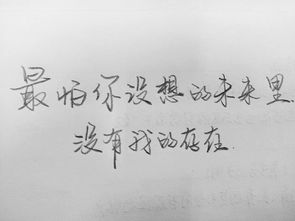 最怕你设想的未来里
没有我的存在.